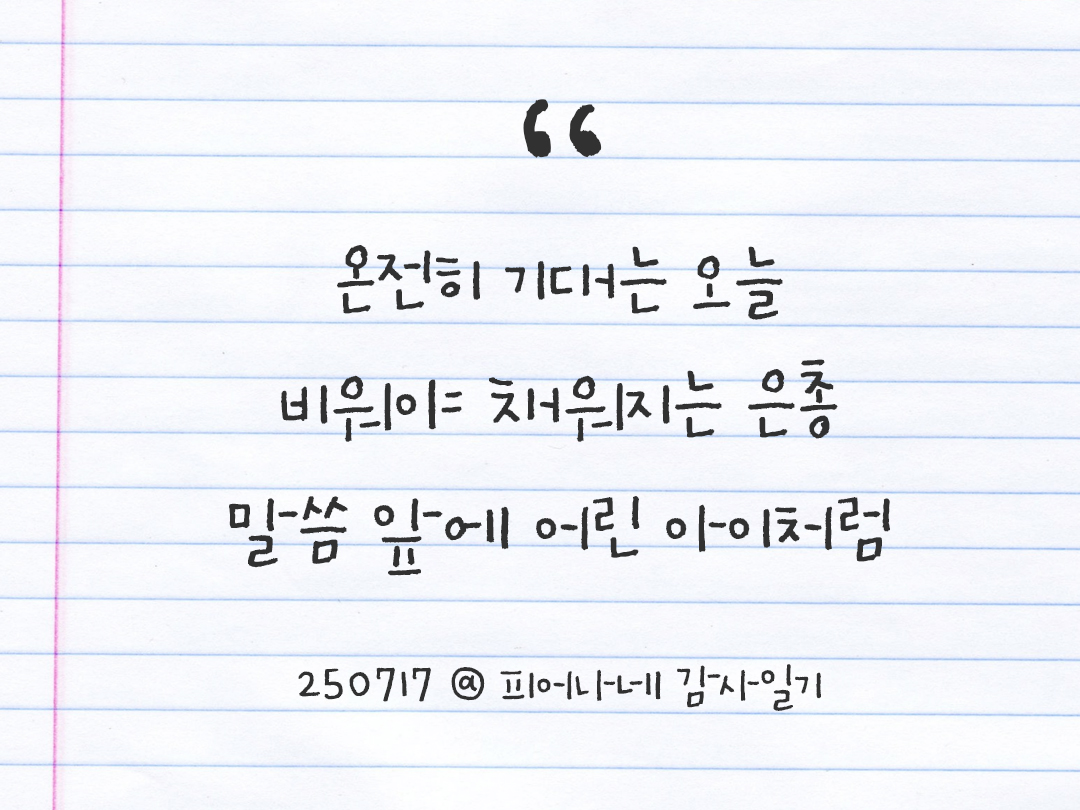 “
온전히 기대는 오늘
비워야 채워지는 은총
말씀 앞에 어린 아이처럼
250717 @ 피어나네 감사일기